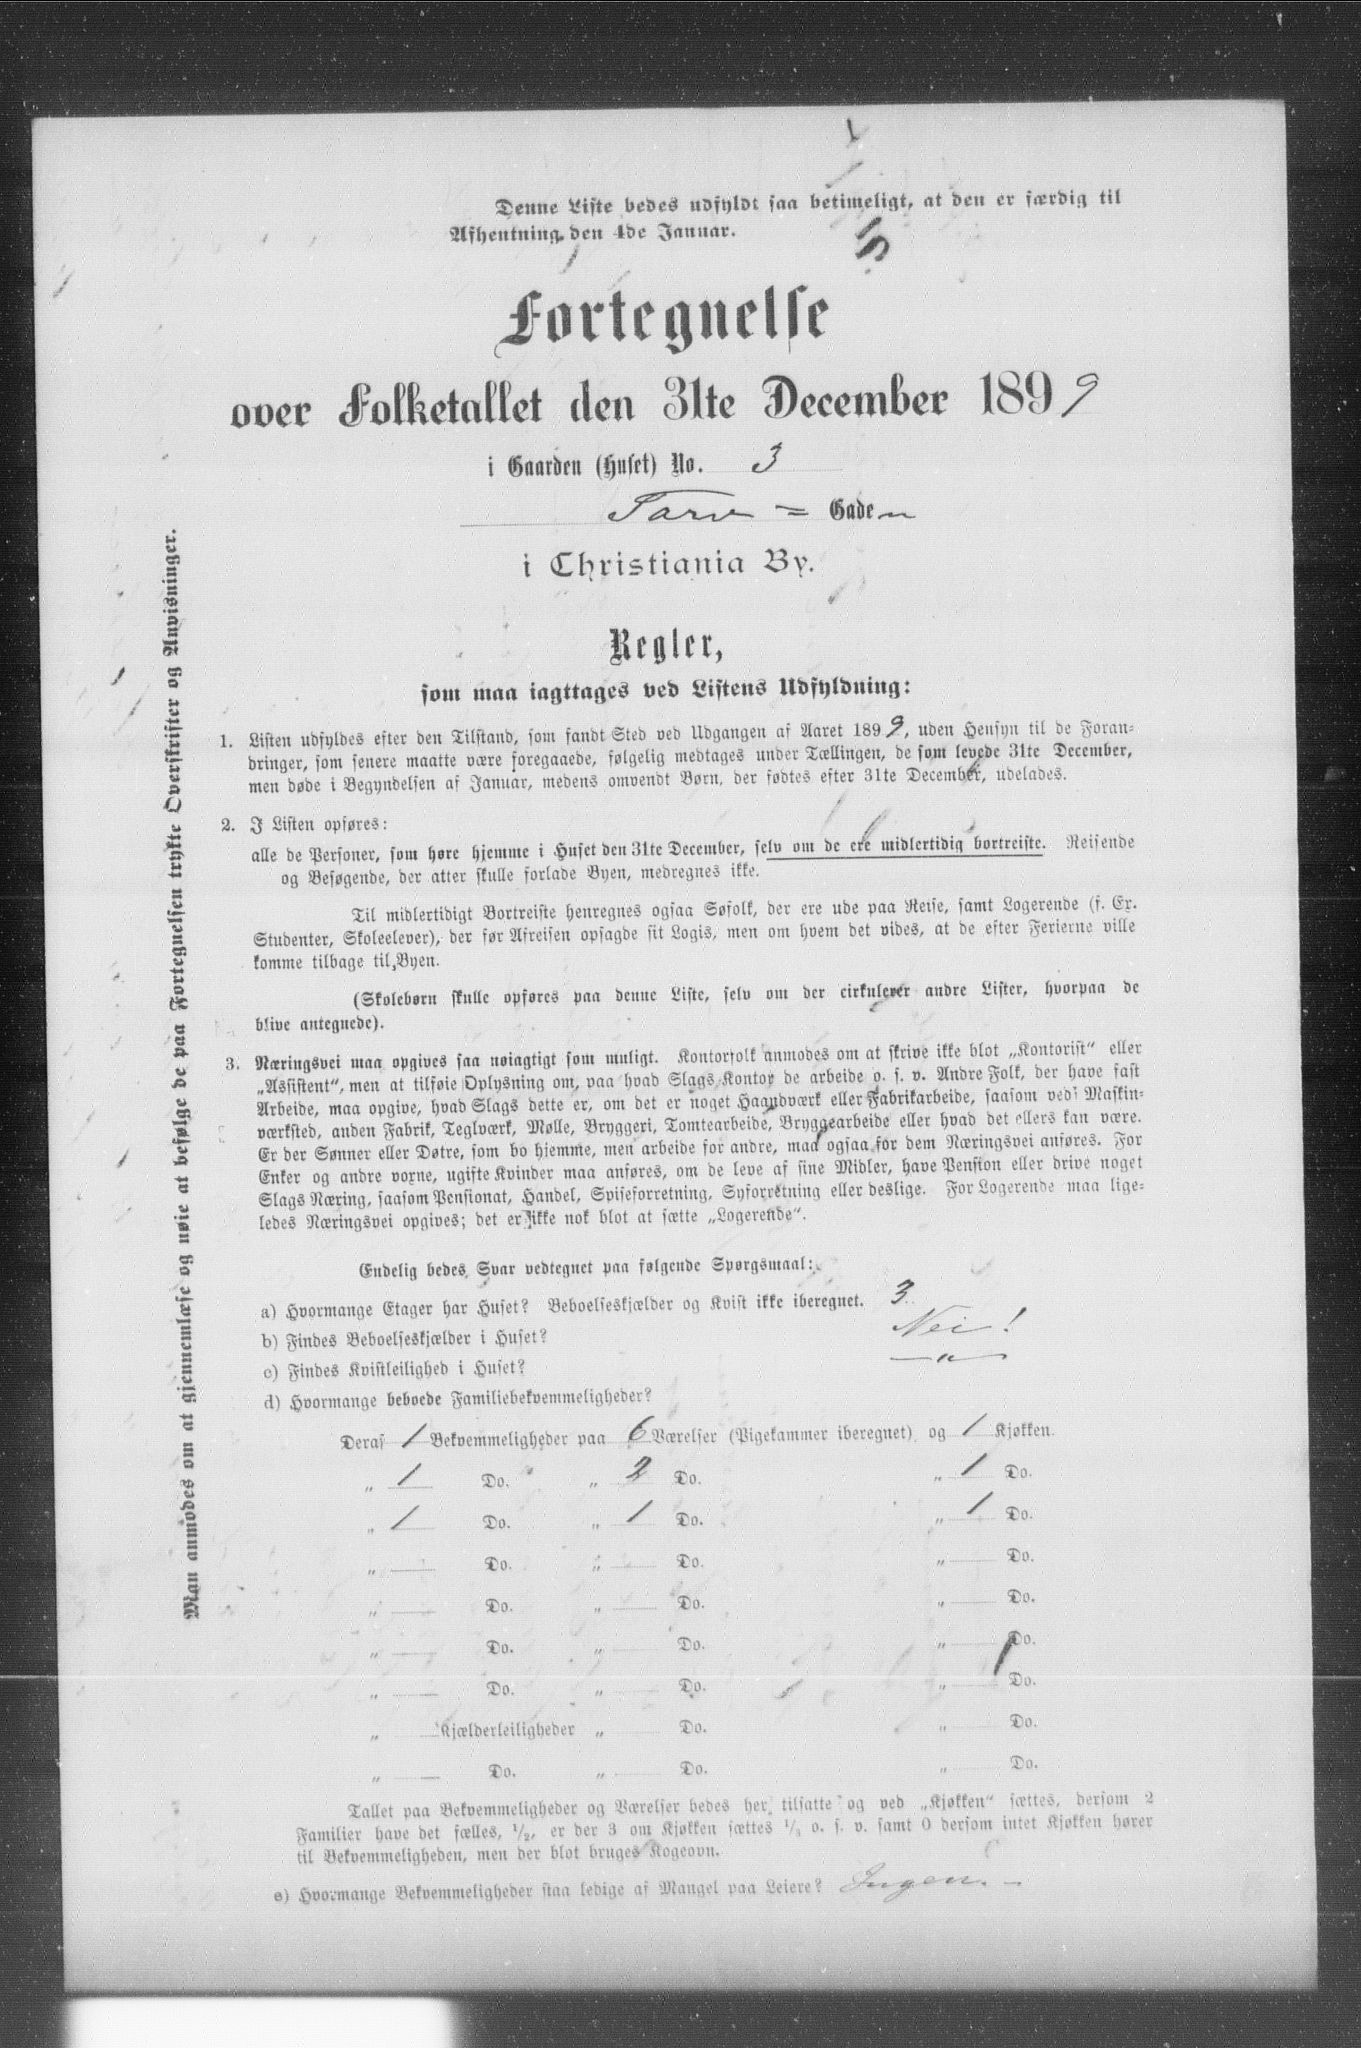 Denne Liste bedes udfyldt saa betimeligt, at den er færdig til
Afhentning den 4de Januar.
Fortegnelse
over Folketallet den 31te December 1899
i Gaarden (Huset) No. 3
Torv = Gaden
i Christiania By.
Regler,
som maa iagttages ved Listens Udfyldning:
1. Listen udfyldes efter den Tilstand, som fandt Sted ved Udgangen af Aaret 1899, uden Hensyn til de Foran-
dringer, som senere maatte være foregaaede, følgelig medtages under Tællingen, de som levede 31te December,
men døde i Begyndelsen af Januar, medens omvendt Børn, der fødtes efter 31te December, udelades.
2. I Listen opføres:
alle de Personer, som høre hjemme i Huset den 31te December, selv om de ere midlertidig bortreiste. Reisende
og Besøgende, der atter skulle forlade Byen, medregnes ikke.
Til midlertidigt Bortreiste henregnes ogsaa Søfolk, der ere ude paa Reise, samt Logerende (f. Ex.
Studenter, Skoleelever), der før Afreisen opsagde sit Logis, men om hvem det vides, at de efter Ferierne ville
komme tilbage til Byen.
(Skolebørn skulle opføres paa denne Liste, selv om der cirkulerer andre Lister, hvorpaa de
blive antegnede).
3. Næringsvei maa opgives saa nøiagtigt som muligt. Kontorfolk anmodes om at skrive ikke blot „Kontorist“ eller
„Assistent“, men at tilføie Oplysning om, paa hvad Slags Kontor de arbeide o. s. v. Andre Folk, der have fast
Arbeide, maa opgive, hvad Slags dette er, om det er noget Haandværk eller Fabrikarbeide, saasom ved Maskin-
værksted, anden Fabrik, Teglværk, Mølle, Bryggeri, Tomtearbeide, Bryggearbeide eller hvad det ellers kan være.
Er der Sønner eller Døtre, som bo hjemme, men arbeide for andre, maa ogsaa for dem Næringsvei anføres. For
Enker og andre voxne, ugifte Kvinder maa anføres, om de leve af sine Midler, have Pension eller drive noget
Slags Næring, saasom Pensionat, Handel, Spiseforretning, Syforretning eller deslige. For Logerende maa lige-
ledes Næringsvei opgives; det er ikke nok blot at sætte „Logerende“.
Endelig bedes Svar vedtegnet paa følgende Spørgsmaal:
a) Hvormange Etager har Huset? Beboelseskjælder og Kvist ikke iberegnet. 3
b) Findes Beboelseskjælder i Huset? Nei!
c) Findes Kvistleilighed i Huset? — „ —
d) Hvormange beboede Familiebekvemmeligheder?
Deraf 1 Bekvemmeligheder paa 6 Værelser (Pigekammer iberegnet) og 1 Kjøkken.
„ 1 Do. „ 2 Do. „ 1 Do.
„ 1 Do. „ 1 Do. „ 1 Do.
„ Do. „ Do. „ Do.
„ Do. „ Do. „ Do.
„ Do. „ Do. „ Do.
„ Do. „ Do. „ Do.
„ Kjælderleiligheder „ Do. „ Do.
„ Do. „ Do. „ Do.
Tallet paa Bekvemmeligheder og Værelser bedes her tilsatte og ved „Kjøkken“ sættes, dersom 2
Familier have det fælles, 1/2, er der 3 om Kjøkken sættes 1/3 o. s. v. samt 0 dersom intet Kjøkken hører
til Bekvemmeligheden, men der blot bruges Kogeovn.
e) Hvormange Bekvemmeligheder staa ledige af Mangel paa Leiere? Ingen. —
Man anmodes om at gjennemlæse og nøie at befølge de paa Fortegnelsen trykte Overskrifter og Anvisninger.